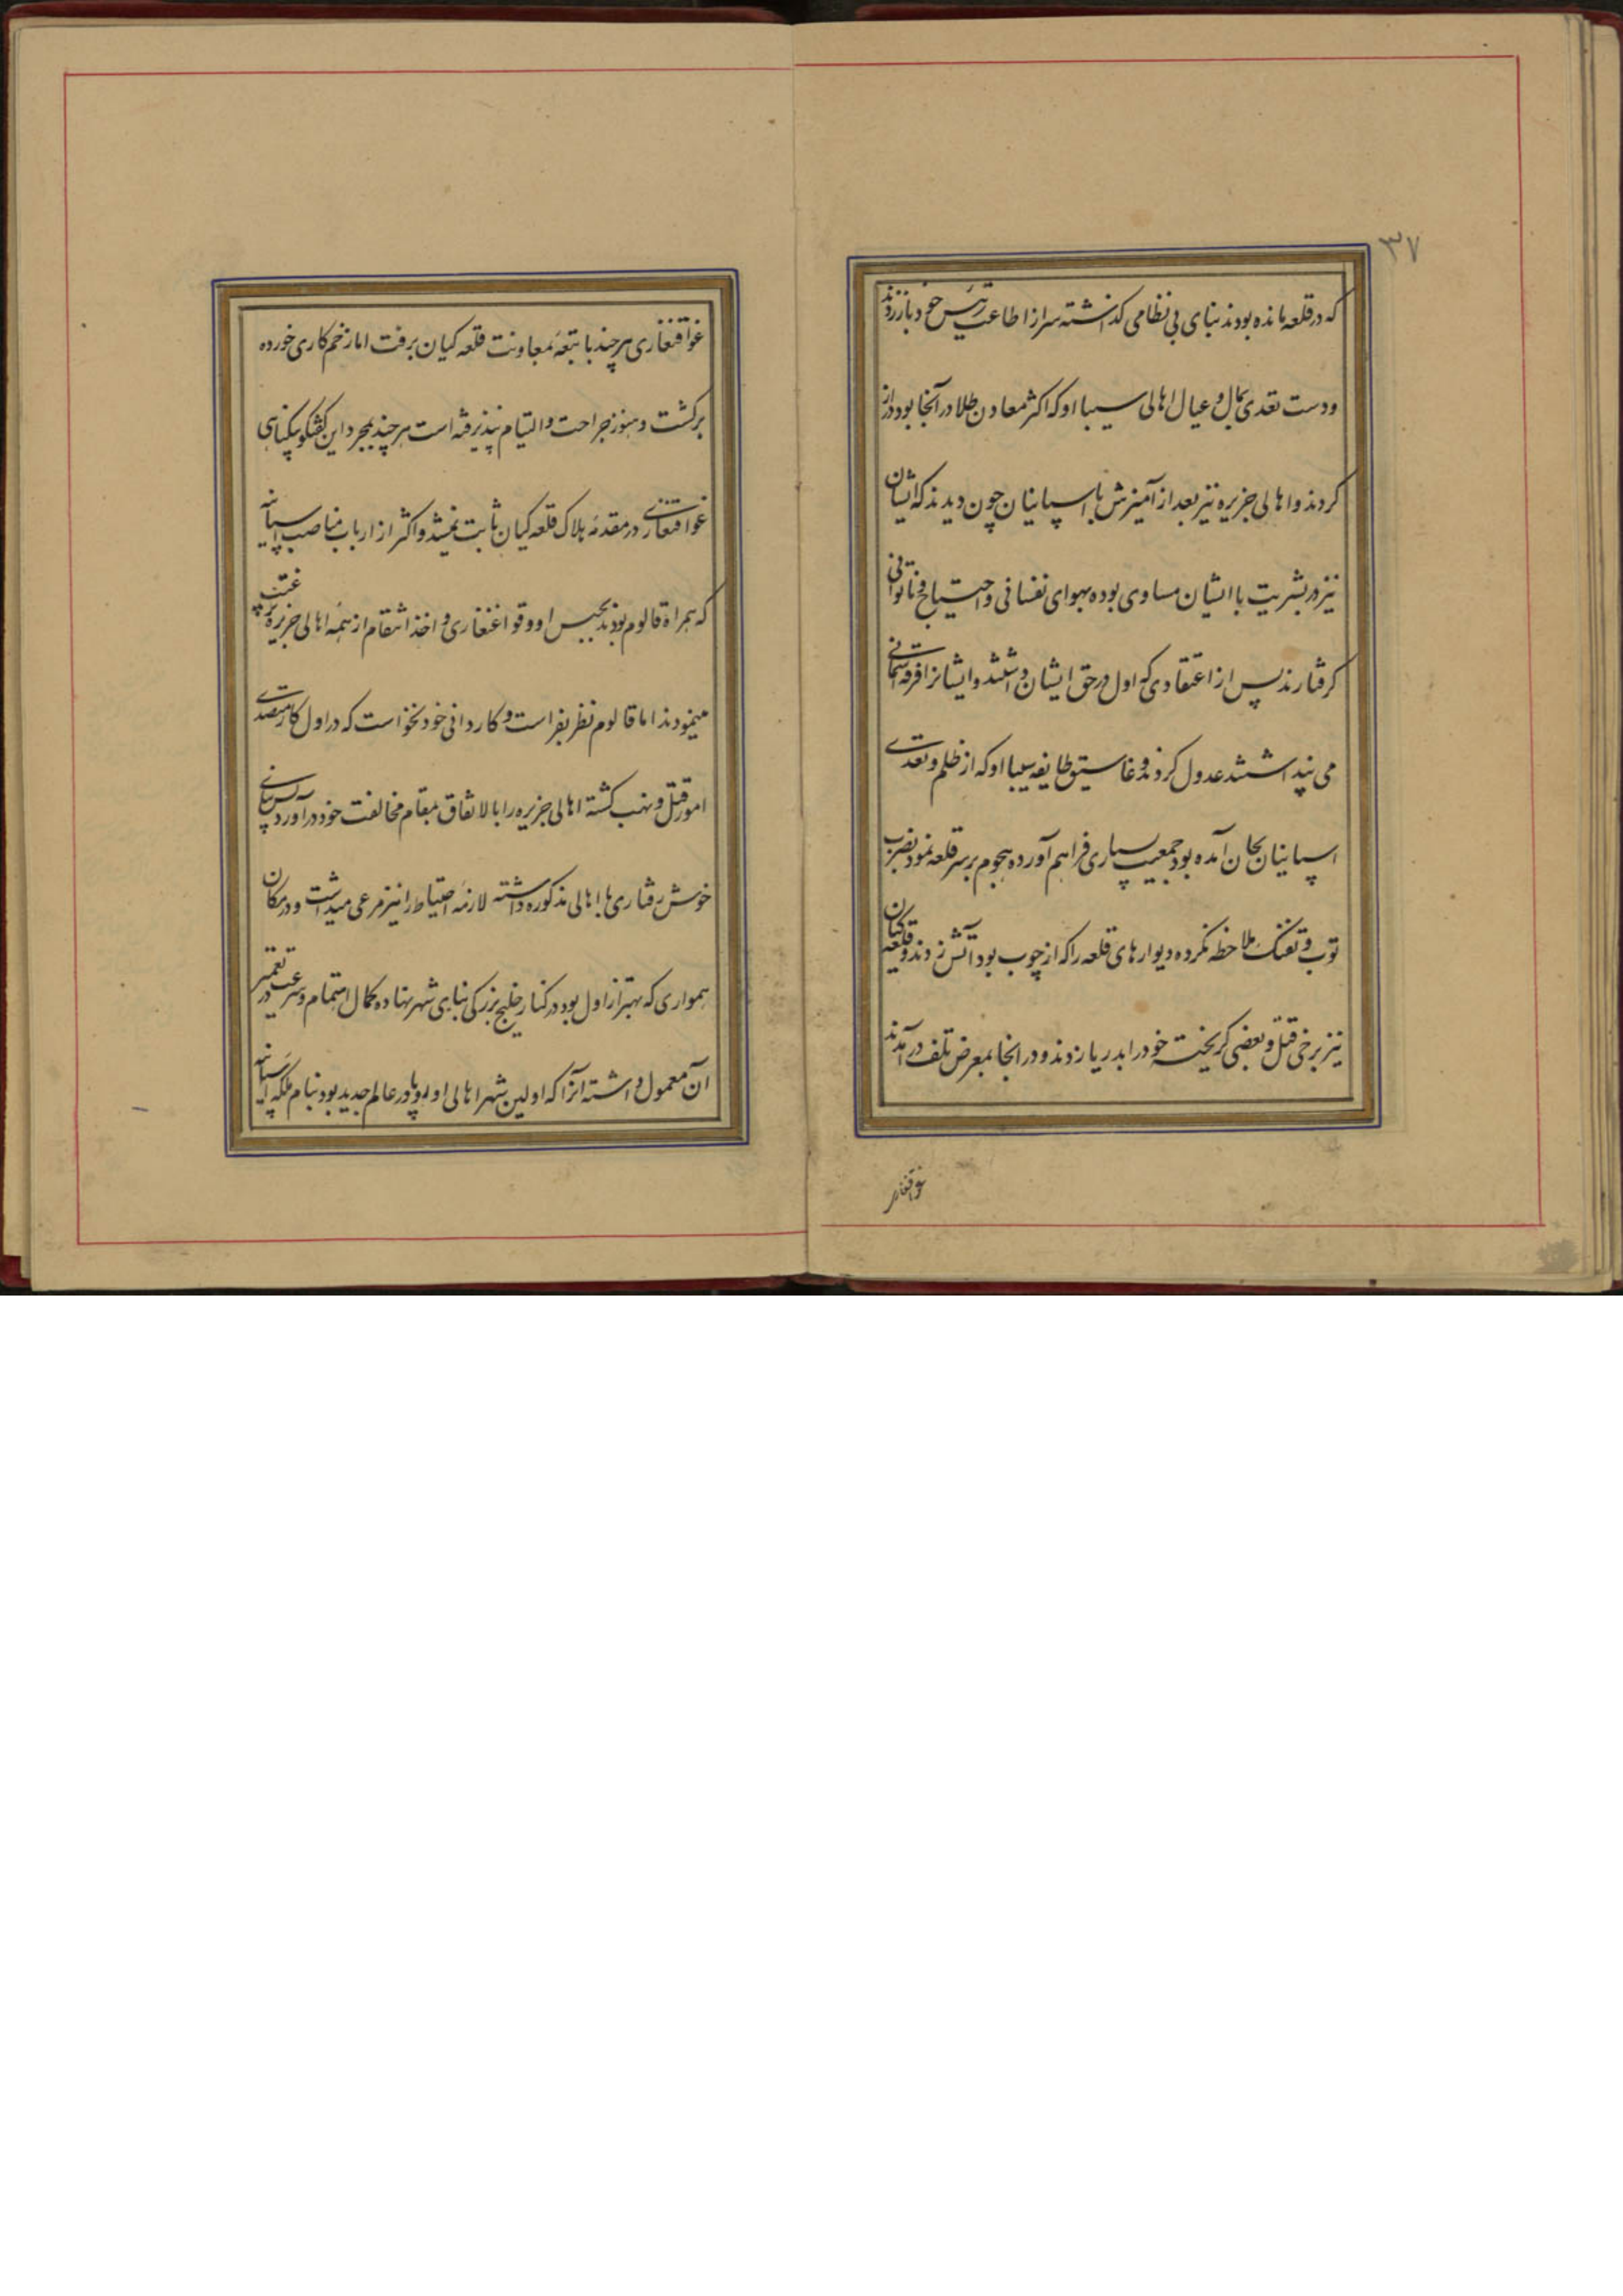 ۳۷
که در قلعه مانده بودند بنای بی نظامی گذاشته سر از اطاعت رئیس خود باز زدند
و دست تعدی بمال و عیال اهالی سیبااو که اکثر معادن طلا در آنجا بود دراز
کردند و اهالی جزیره نیز بعد از آمیزش با اسپانیان چون دیدند که ایشان
نیز در بشریت با ایشان مساوی بوده بهوای نفسانی و احتیاج و ناتوانی
گرفتارند پس از اعتقادی که اول در حق ایشان داشتند و ایشانرا فرقه آسمانی
می پنداشتند عدول کردند و غاسیق طایفه سیبااو که از ظلم و تعدی
اسپانیان بجان آمده بود جمعیت بسیاری فراهم آورده هجوم بر سر قلعه نمود بضرب
توپ و تفنگ ملاحظه نکرده دیوارهای قلعه را که از چوب بود آتش زدند و قلعه کیان
نیز برخی قتل و بعضی گریخته خود را بدریا زدند و در آنجا بمعرض تلف در آمدند
غواقنغاری
غواقنغاری هر چند با تبعه بمعاونت قلعه کیان برفت اما زخم کاری خورده
برگشت و هنوز جراحت او التیام نپذیرفته است هر چند بمجرد این گفتگو بیگناهی
غواقنغاری در مقدمه هلاک قلعه کیان ثابت نمیشد و اکثر از ارباب مناصب اسپانیه
که همراه قالوم بودند بحبس او وقواغنغاری و اخذ انتقام از همه اهالی جزیره
مینمودند اما قالوم نظر بفراست و کاردانی خود نخواست که در اول کار متصدی
امور قتل و نهب گشته اهالی جزیره را بالاتفاق بمقام مخالفت خود در آورد پس بنای
خوش رفتاری با اهالی مذکوره داشته لازمه احتیاط را نیز مرعی میداشت و در مکان
همواری که بهتر از اول بود در کنار خلیج بزرگی بنای شهر نهاده کمال اهتمام و سرعت در تعمیر
آن معمول داشته آنرا که اولین شهر اهالی اوروپا در عالم جدید بود بنام ملکه اسپانیه